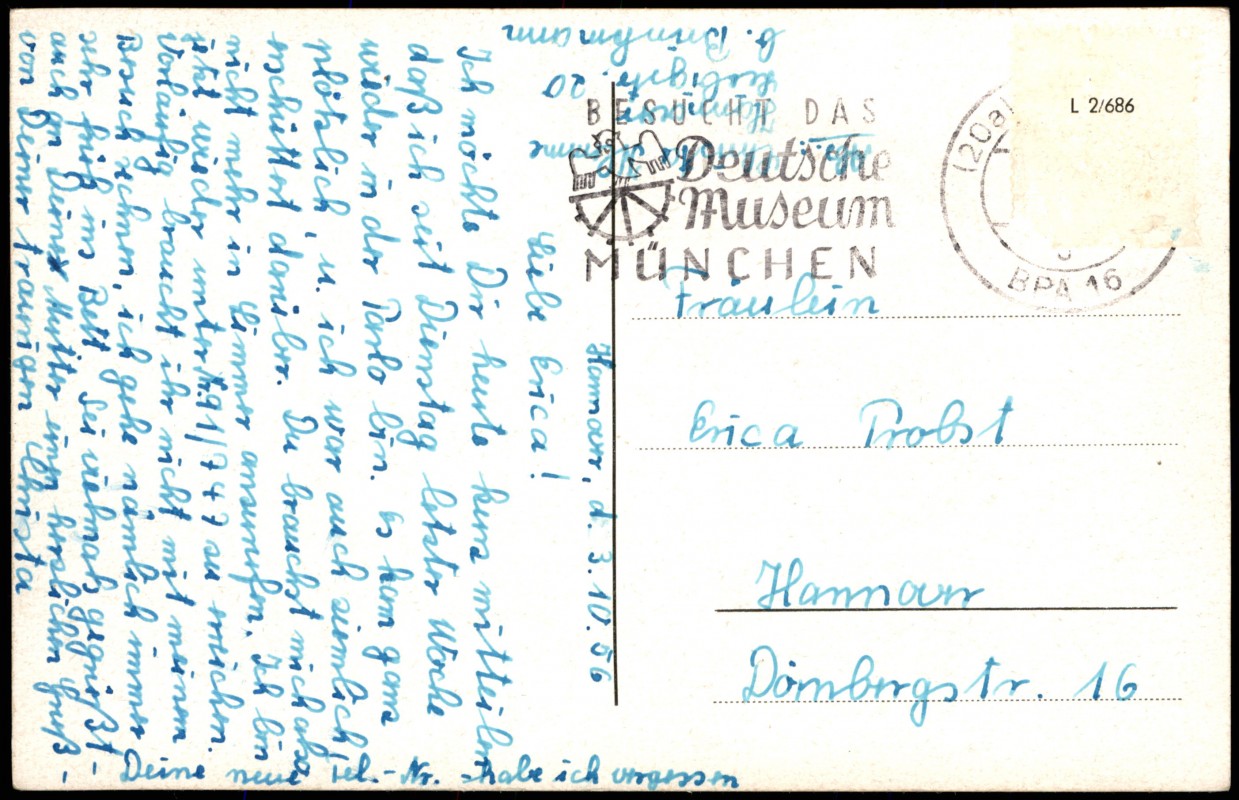 Hannover, d. 3.10.56
Liebe Erica!
Ich möchte Dir heute kurz mitteilen
daß ich seit Dienstag letzter Woche
wieder in der Penlo bin. Es kam ganz
plötzlich, u. ich war auch ziemlich
erschüttert darüber. Du brauchst mich also
nicht mehr in Zimmer anzurufen. Ich bin
jetzt wieder unter 91/747 zu erreichen.
Vorläufig braucht ihr nicht mit meinem
Besuch rechnen, ich gehe nämlich immer
sehr früh ins Bett. Sei vielmals gegrüßt
auch an Deine Mutter einen herzlichen Gruß
von Deiner traurigen Christa
- Deine neue Tel.-Nr. habe ich vergessen
Hannover
20
C. Brinkmann
BESUCHT DAS
Deutsche
Museum
MÜNCHEN
L 2/686
(20a)
BPA 16
Fräulein
Erica Probst
Hannover
Dörnbergstr. 16